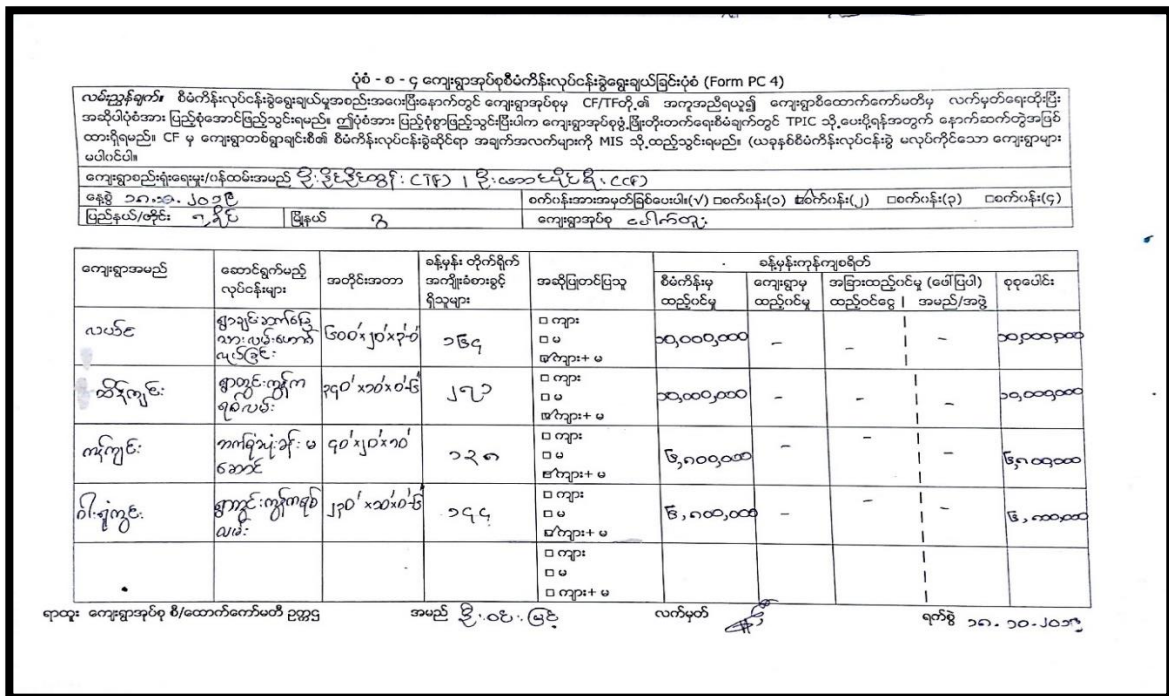 ပုံစံ - စ - ၄ ကျေးရွာအုပ်စုစီမံကိန်းလုပ်ငန်းခွဲရွေးချယ်ခြင်းပုံစံ (Form PC 4)
လမ်းညွှန်ချက်။ စီမံကိန်းလုပ်ငန်းခွဲရွေးချယ်မှုအစည်းအဝေးပြီးနောက်တွင် ကျေးရွာအုပ်စုမှ CF/TFတို့၏ အကူအညီရယူ၍ ကျေးရွာစီထောက်ကော်မတီမှ လက်မှတ်ရေးထိုးပြီး
အဆိုပါပုံစံအား ပြည့်စုံအောင်ဖြည့်သွင်းရမည်။ ဤပုံစံအား ပြည့်စုံစွာဖြည့်သွင်းပြီးပါက ကျေးရွာအုပ်စုဖွံ့ဖြိုးတိုးတက်ရေးစီမံချက်တွင် TPIC သို့ပေးပို့ရန်အတွက် နောက်ဆက်တွဲအဖြစ်
ထားရှိရမည်။ CF မှ ကျေးရွာတစ်ရွာချင်းစီ၏ စီမံကိန်းလုပ်ငန်းခွဲဆိုင်ရာ အချက်အလက်များကို MIS သို့ထည့်သွင်းရမည်။ (ယခုနှစ်စီမံကိန်းလုပ်ငန်းခွဲ မလုပ်ကိုင်သော ကျေးရွာများ
မပါဝင်ပါ။
ကျေးရွာစည်းရုံးရေးမှူး/ပန်ထမ်းအမည် (CTF) (CCF)
နေ့စွဲ ၁၈.၁၀.၂၀၁၉ စက်ဝန်းအားအမှတ်ခြစ်ပေးပါ။(√) □စက်ဝန်း(၁) ☑စက်ဝန်း(၂) □စက်ဝန်း(၃) □စက်ဝန်း(၄)
ပြည်နယ်/တိုင်း ရခိုင် မြို့နယ် ဂွ ကျေးရွာအုပ်စု ပေါက်တူး
ကျေးရွာအမည် ဆောင်ရွက်မည့် လုပ်ငန်းများ အတိုင်းအတာ ခန့်မှန်း တိုက်ရိုက် အကျိုးခံစားခွင့် ရှိသူများ အဆိုပြုတင်ပြသူ ခန့်မှန်းကုန်ကျစရိတ်
စီမံကိန်းမှ ထည့်ဝင်မှု ကျေးရွာမှ ထည့်ဝင်မှု အခြားထည့်ဝင်မှု (ဖော်ပြပါ) ထည့်ဝင်ငွေ | အမည်/အဖွဲ့ စုစုပေါင်း
လယ်ဝ ရွာချင်းဆက်မြေသားလမ်းဖောက်လုပ်ခြင်း ၆၀၀'x၂၀'x၃'-၀' ၁၆၄ □ ကျား □ မ ☑ကျား+ မ ၁၀,၀၀၀,၀၀၀ - - - ၁၀,၀၀၀,၀၀၀
ရွာတွင်းကွန်ကရစ်လမ်း ၃၄၀'x၁၀'x၀'-၆" ၂၇၁ □ ကျား □ မ ☑ကျား+ မ ၁၀,၀၀၀,၀၀၀ - - - ၁၀,၀၀၀,၀၀၀
ကန်ကျင်း ဘက်စုံသုံးခန်းမဆောင် ၄၀'x၂၀'x၁၀' ၁၃၈ □ ကျား □ မ ☑ကျား+ မ ၆,၈၀၀,၀၀၀ - - - ၆,၈၀၀,၀၀၀
ရွာတွင်းကွန်ကရစ်လမ်း ၂၃၀'x၁၀'x၀'-၆" ၁၄၄ □ ကျား □ မ ☑ကျား+ မ ၆,၈၀၀,၀၀၀ - - - ၆,၈၀၀,၀၀၀
□ ကျား □ မ □ ကျား+ မ
ရာထူး ကျေးရွာအုပ်စု စီ/ထောက်ကော်မတီ ဥက္ကဋ္ဌ အမည် ဦးဝင်းမြင့် လက်မှတ် ရက်စွဲ ၁၈-၁၀-၂၀၁၉